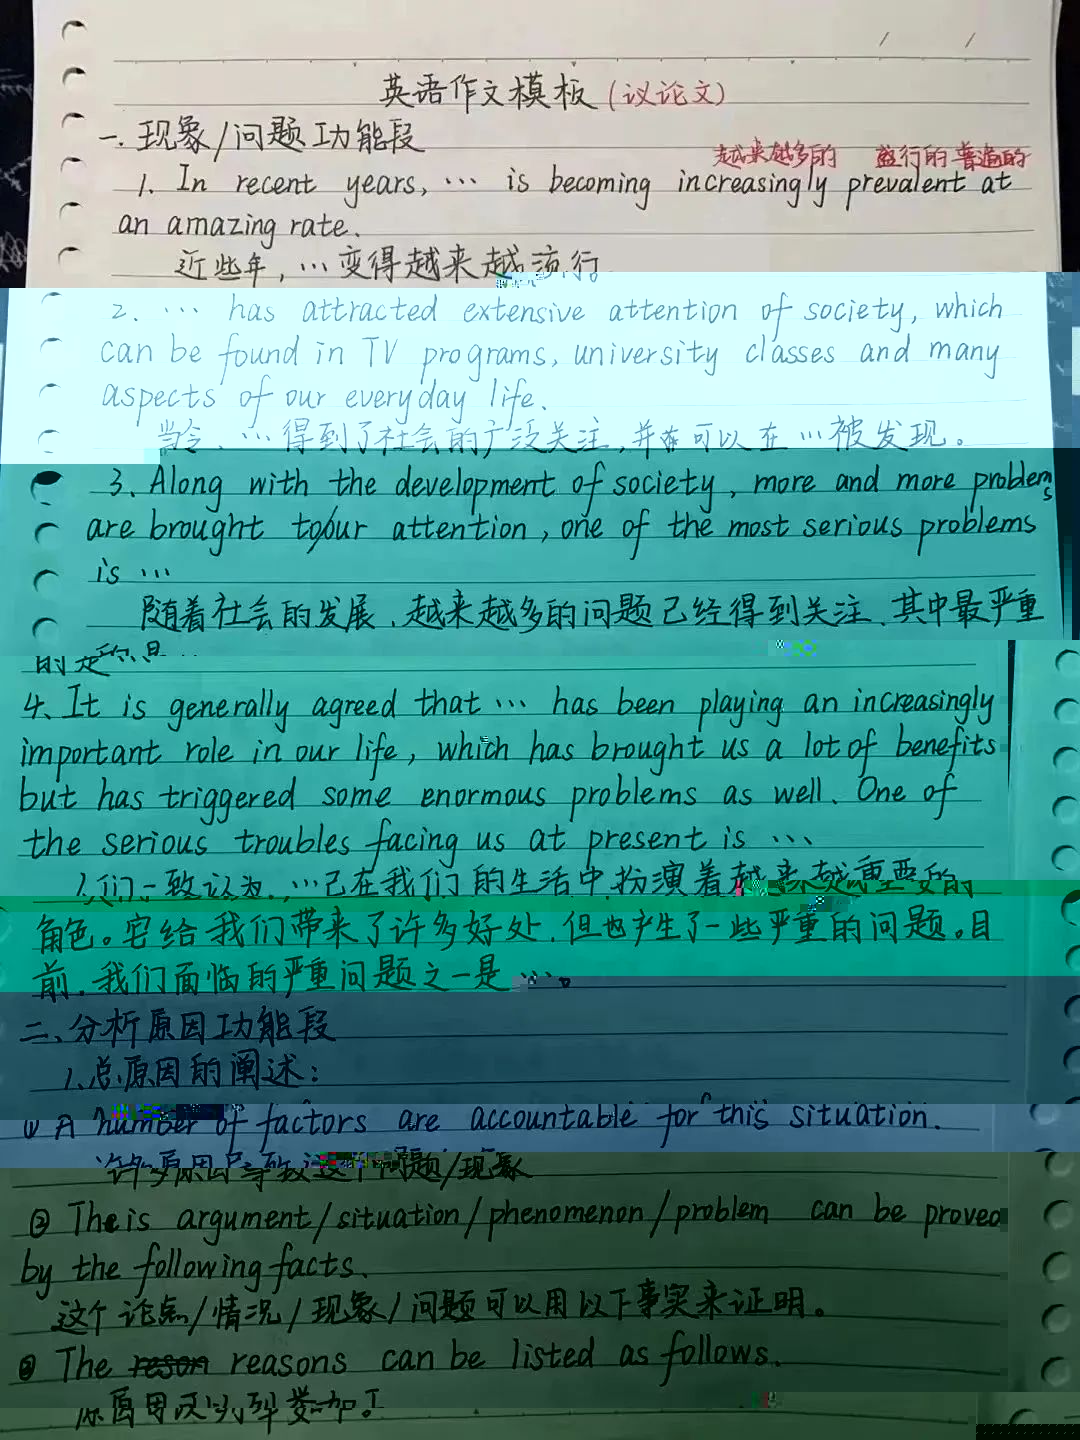 英语作文模板(议论文)
一、现象/问题功能段
越来越多的 盛行的 普遍的
1. In recent years, … is becoming increasingly prevalent at
an amazing rate.
近些年, …变得越来越流行
2. … has attracted extensive attention of society, which
can be found in TV programs, university classes and many
aspects of our everyday life.
当今, …得到了社会的广泛关注,并可以在…被发现。
3. Along with the development of society, more and more problems
are brought to our attention, one of the most serious problems
is …
随着社会的发展,越来越多的问题已经得到关注,其中最严重
的是
4. It is generally agreed that … has been playing an increasingly
important role in our life, which has brought us a lot of benefits
but has triggered some enormous problems as well. One of
the serious troubles facing us at present is …
人们一致认为, …已在我们的生活中扮演着越来越重要的
角色。它给我们带来了许多好处,但也产生了一些严重的问题。目
前,我们面临的严重问题之一是…。
二、分析原因功能段
1.总原因的阐述:
① A number of factors are accountable for this situation.
许多原因导致这个问题/现象
② This argument/situation/phenomenon/problem can be proved
by the following facts.
这个论点/情况/现象/问题可以用以下事实来证明。
③ The reasons can be listed as follows.
原因可以列